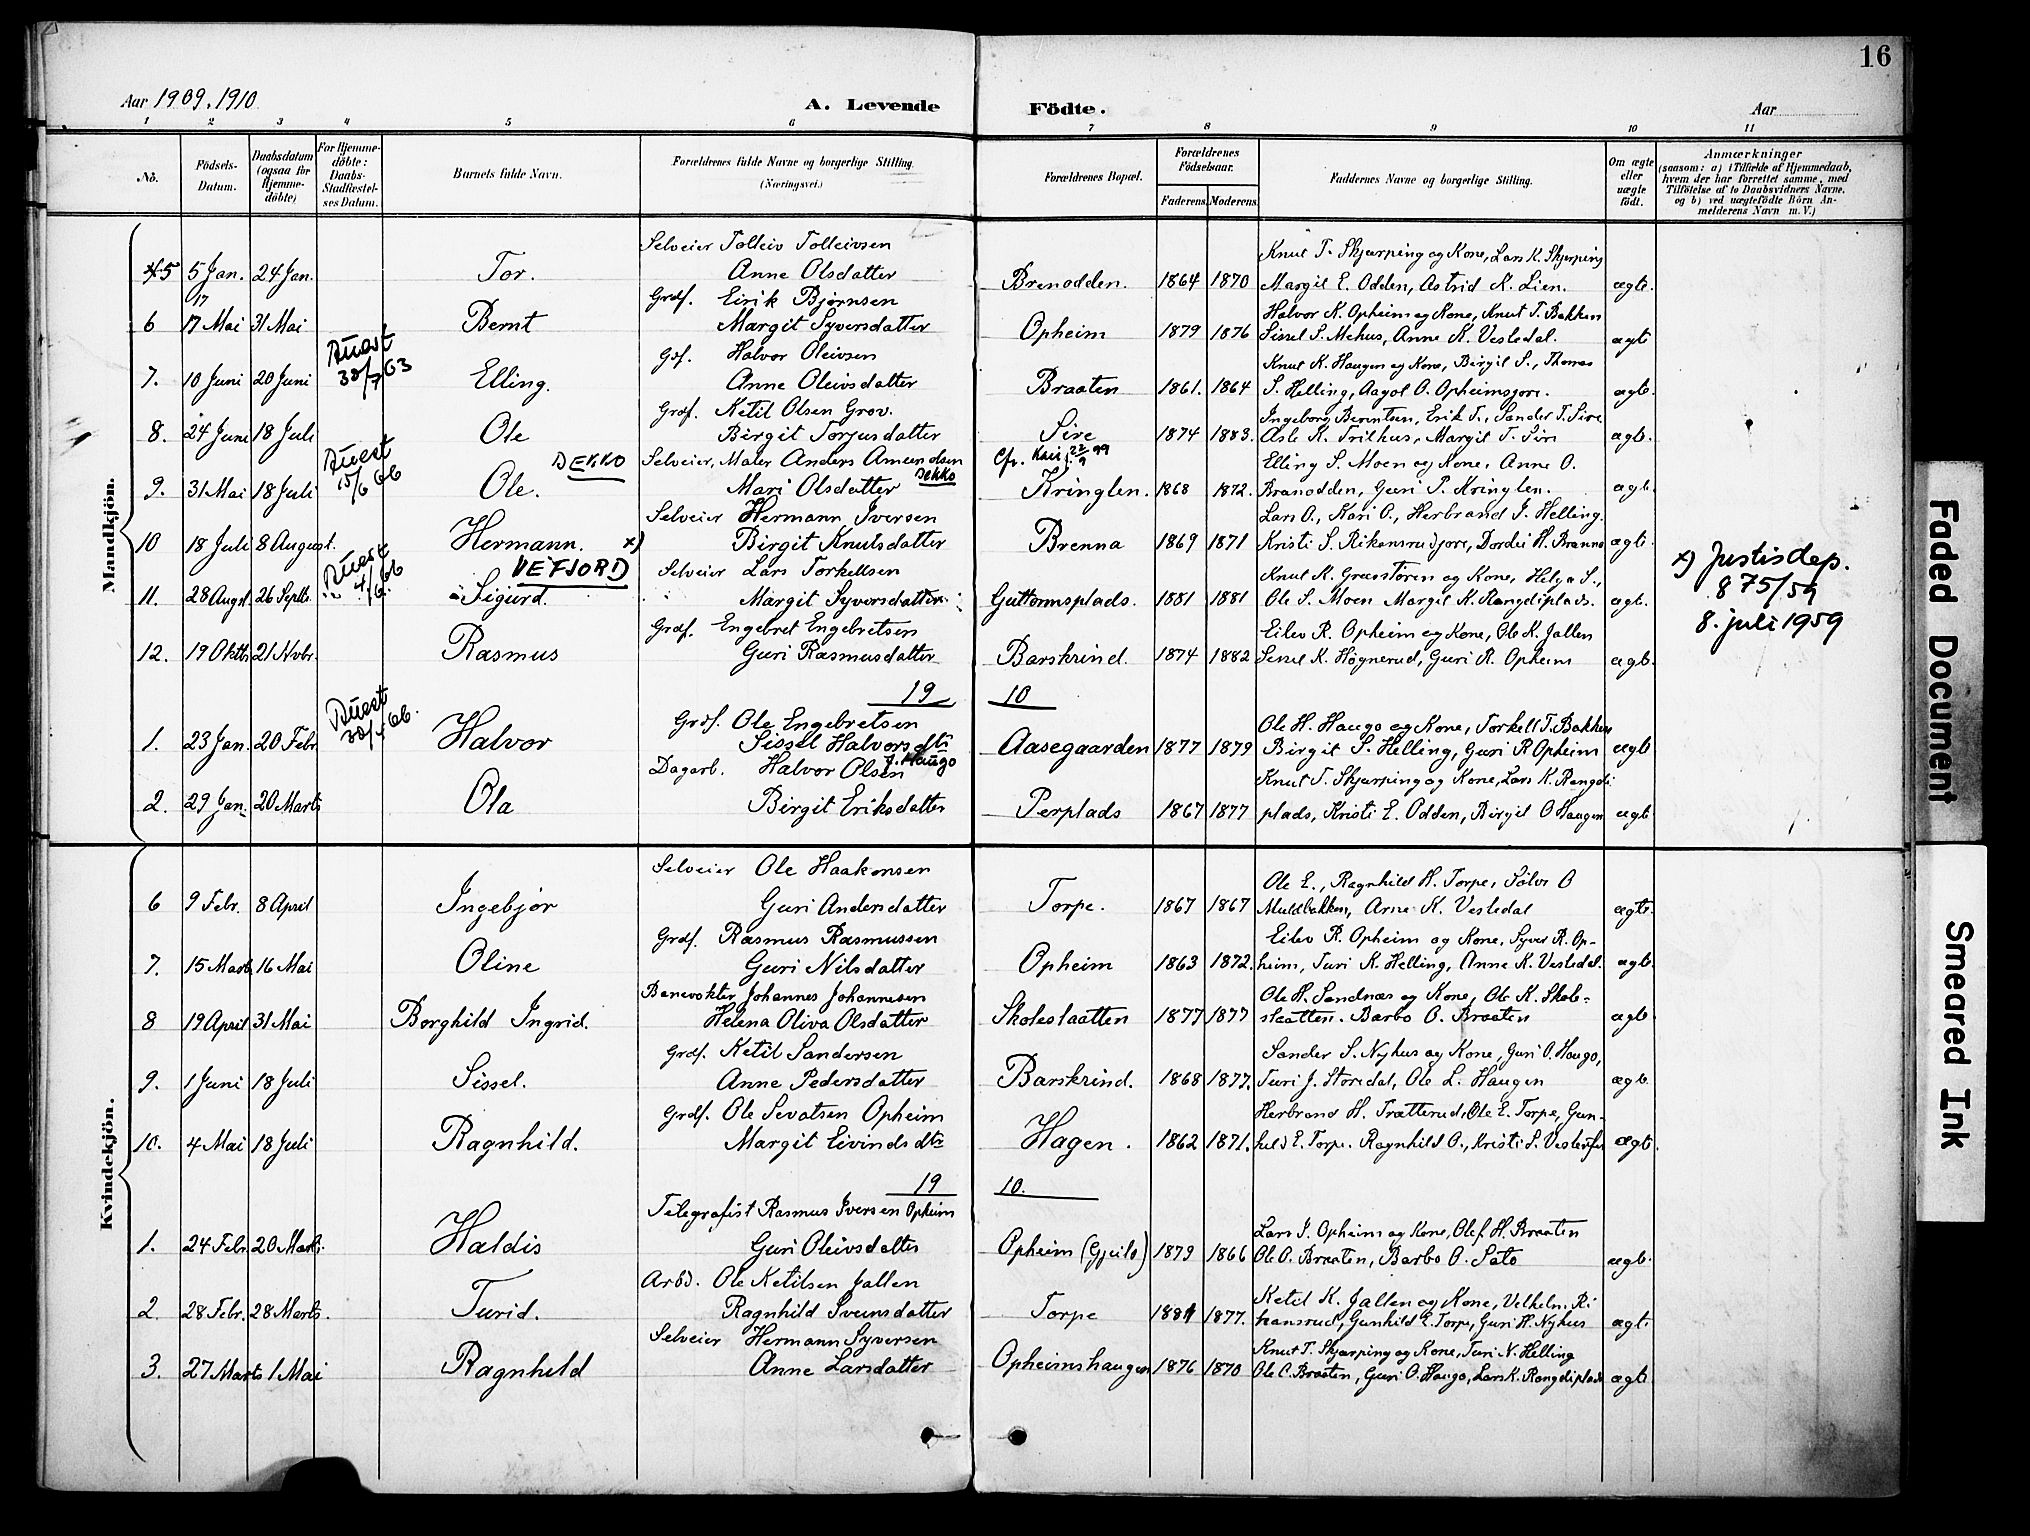 16
Aar 1909. 1910
A. Levende
Födte.
Aar
1 2 3 4 5 6 7 8 9 10 11
No.
Födsels-Datum.
Daabsdatum (ogsaa for Hjemme-döbte)
For Hjemme-döbte: Daabs-Stadfæstel-ses Datum.
Barnets fulde Navn.
Forældrenes fulde Navne og borgerlige Stilling.
(Næringsvei.)
Forældrenes Bopæl.
Forældrenes Födselsaar.
Faderens. Moderens.
Faddernes Navne og borgerlige Stilling.
Om ægte eller uægte födt.
Anmærkninger
(saasom: a) i Tilfælde af Hjemmedaab, hvem der har forrettet samme, med Tilföielse af to Daabsvidners Navne, og b) ved uægtefödte Börn An-melderens Navn m. V.)
Mandkjön.
Selveier Tolleiv Tolleivsen
Knut T. Skjærping og Kone, Lars K. Skjerping
5 5 Jan. 24 Jan. Tor. Anne Olsdatter Brenodden. 1864 1870 Margit E. Odden, Astrid K. Lien. ægte.
17
Grdf. Eirik Bjørnsen
Halvor K. Opheim og Kone, Knut T. Bakken
6 17 Mai 31 Mai Bernt Margit Syversdatter Opheim 1879 1876 Sissel S. Mehus, Anne K. Vesledal. ægt
Attest 30/7 63
Gdf. Halvor Oleivsen
Knut K. Haugen og Kone, Birgit S., Thomas
7. 10 Juni 20 Juni Elling. Anne Oleivsdatter Braaten 1861. 1864 S. Helling, Aagot O. Opheimsjore. ægt.
Grdf. Ketil Olsen Grov.
Ingeborg Berintsen, Erik T., Sander T. Sire
8. 24 Juni 18 Juli Ole Birgit Torjusdatter Sire 1874 1883. Asle K. Trilhus, Margit T. Siri ægt.
Attest 15/6 66
DEKKO
Selveier, Maler Anders Amundsen
Cfr. Kari f. 22/9 99
Elling S. Moen og Kone, Anne O.
9. 31 Mai 18 Juli Ole. Mari Olsdatter DEKKO Kringlen. 1868 1872. Branodden, Guri P. Kringlen. ægt.
Selveier Hermann Iversen
Lars O., Kari O., Herbrand J. Helling.
10 18 Juli 8 August. Hermann. x) Birgit Knutsdatter Brenna 1869 1871 Kristi S. Rikansrudjore, Dordei H. Branna ægt.
x) Justisdep.
875/59
8. juli 1959
Attest 4/6 66
VEFJORD
Selveier Lars Torkellsen
Knut K. Græsstøren og Kone, Helga S.,
11. 28 Augst 26 Septb. Sigurd. Margit Syversdatter. Guttormsplads. 1881 1881 Ole S. Moen Margit K. Rangdiplads. ægt.
Grdf. Engebret Engebretsen
Eilev R. Opheim og Kone, Ole K. Jallen
12. 19 Oktb 21 Nvbr. Rasmus Guri Rasmusdatter Barskrind. 1874 1882 Sissel K. Høgnerud, Guri R. Opheim ægt.
19 10
Attest
Grdf. Ole Engebretsen
Ole H. Haugo og Kone, Torkell T. Bakken
1. 23 Jan. 20 Febr Halvor Sissel Halvorsdtr Aasegaarden 1877 1879 Birgit S. Helling, Guri R Opheim ægt
Dagarb. Halvor Olsen J. Haugo
Knut T. Skjærping og Kone, Lars K. Rangdi
2. 29 Jan. 20 Marts Ola Birgit Eriksdatter Perplads 1867 1877 plads, Kristi E. Odden, Birgit O Haugen ægt
Kvindekjön.
Selveier Ole Haakonsen
Ole E., Ragnhild H. Torpe, Sølvi O
6 9 Febr. 8 April Ingebjør Guri Andersdatter Torpe. 1867 1867 Muldbakken, Arne K. Vesledal ægte.
Grdf. Rasmus Rasmussen
Eilev R. Opheim og Kone, Syver R. Op-
7. 15 Marts 16 Mai Oline Guri Nilsdatter Opheim 1863 1872. heim, Turi K. Helling, Anne K. Vesledal. ægt.
Banevokter Johannes Johannesen
Ole H. Sandnæs og Kone, Ole K. Skole-
8 19 April 31 Mai Borghild Ingrid. Helena Oliva Olsdatter Skoleslaatten 1877 1877 slaatten. Barbo O. Braaten ægt.
Grdf. Ketil Sandersen
Sander S. Nyhus og Kone, Guri O. Haugo,
9. 1 Juni 18 Juli Sissel. Anne Pedersdatter Barskrind. 1868 1877. Turi J. Storedal, Ole L. Haugen ægt.
Grdf. Ole Sevatsen Opheim
Herbrand H. Trætterud, Ole E. Torpe, Gun-
10. 4 Mai 18 Juli Ragnhild. Margit Eivindsdtr Hagen. 1862 1871. hild E. Torpe. Ragnhild O., Kristi S. ægt.
19 10.
Telegrafist Rasmus Iversen Opheim
Lars I. Opheim og Kone, Olef H. Braaten
1. 24 Febr 20 Marts. Haldis Guri Oleivsdatter Opheim (Gjeilo) 1879 1866 Ole O. Braaten, Barbo O. Sato ægt.
Arbd. Ole Ketilsen Jallen
Ketil K. Jallen og Kone, Velhelm. Ri
2. 28 Febr. 28 Marts. Turid. Ragnhild Sveinsdatter Torpe 1881 1877. hansrud, Gunhild E. Torpe, Guri H. Nyhus ægt.
Selveier Hermann Syversen
Knut T. Skjærping og Kone, Turi N. Helling
3. 27 Marts 1 Mai Ragnhild Anne Larsdatter Opheimshaugen 1876 1870 Ole C. Braaten, Guri O. Haugo, Lars K. Rangdiplads ægt.
Faded Document
Smeared Ink